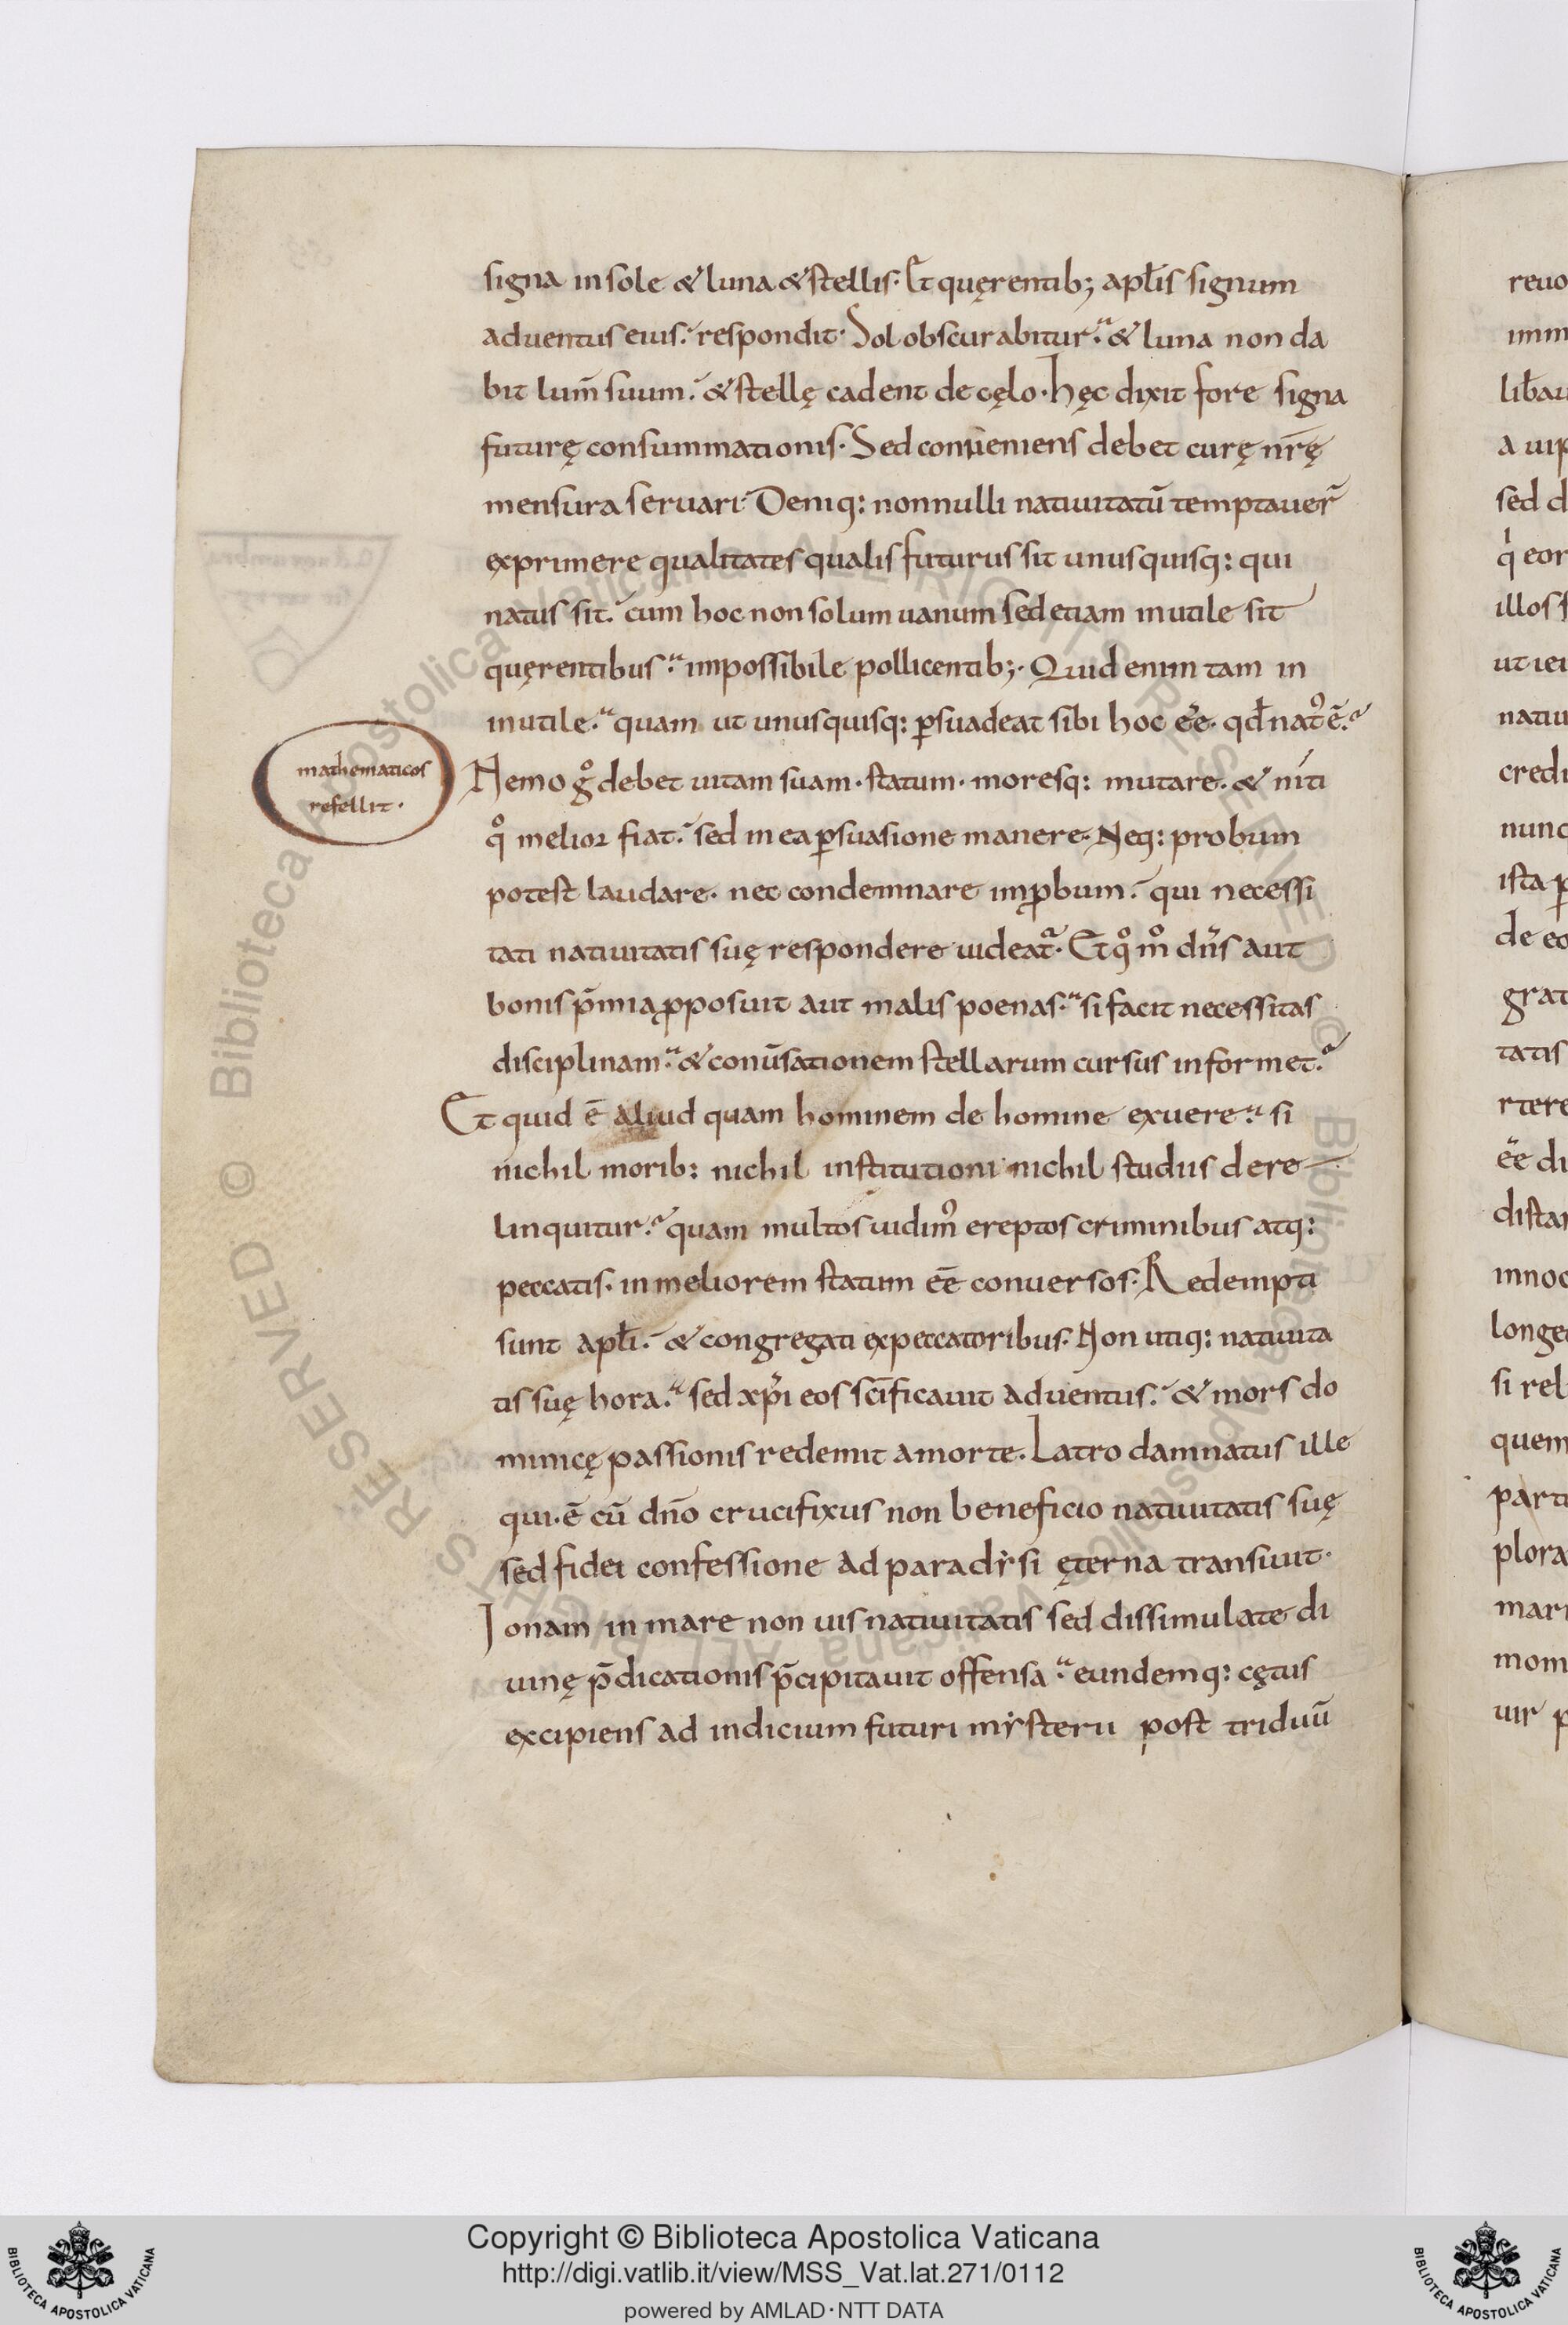 signa in sole & luna & stellis. Et quęrentib; aplis̄ signum
aduentus eius. respondit. Sol obscurabitur. & luna non da
bit lum̄ suum. & stellę cadent de cęlo. hęc dixit fore signa
futurę consummationis. Sed conueniens debet curę nr̄ę
mensura seruari. Deniq: nonnulli natiuitatū temptauer̄
exprimere qualitates qualis futurus sit unusquisq: qui
natus sit. cum hoc non solum uanum sed etiam inutile sit
quęrentibus. impossibile pollicentib;. Quid enim tam in
inutile. quam ut unusquisq: ꝑsuadeat sibi hoc eē. qđ nat᾿ ē.
mathematicos
refellit.
Nemo gͦ debet uitam suam. statum. moresq: mutare. & niti
qͦ melior fiat. sed in ea ꝑsuasione manere. Neq: probum
potest laudare. nec condemnare imꝓbum. qui necessi
tati natiuitatis suę respondere uideat᷒. Et qͦ mͦ dn̄s aut
bonis p̄mia ꝓposuit aut malis poenas. si facit necessitas
disciplinam. & conūsationem stellarum cursus informet.
Et quid ē aliud quam hominem de homine exuere. si
nichil morib: nichil institutioni nichil studiis dere
linquitur. quam multos uidim᾿ ereptos criminibus atq:
peccatis. in meliorem statum eē conuersos. Redempti
sunt apłi. & congregati ex peccatoribus. Non utiq: natiuita
tis suę hora. sed xp̄i eos sc̄ificauit aduentus. & mors do
minicę passionis redemit a morte. Latro damnatus ille
qui. ē cū dn̄o crucifixus non beneficio natiuitatis suę
sed fidei confessione ad paradẏsi ęterna transiuit.
Ionam in mare non uis natiuitatis sed dissimulate di
uinę p̄dicationis p̄cipitauit offensa. eundemq: cętus
excipiens ad indicium futuri mẏsterii post triduū
Copyright © Biblioteca Apostolica Vaticana
http://digi.vatlib.it/view/MSS_Vat.lat.271/0112
powered by AMLAD·NTT DATA
BIBLIOTECA APOSTOLICA VATICANA
BIBLIOTECA APOSTOLICA VATICANA